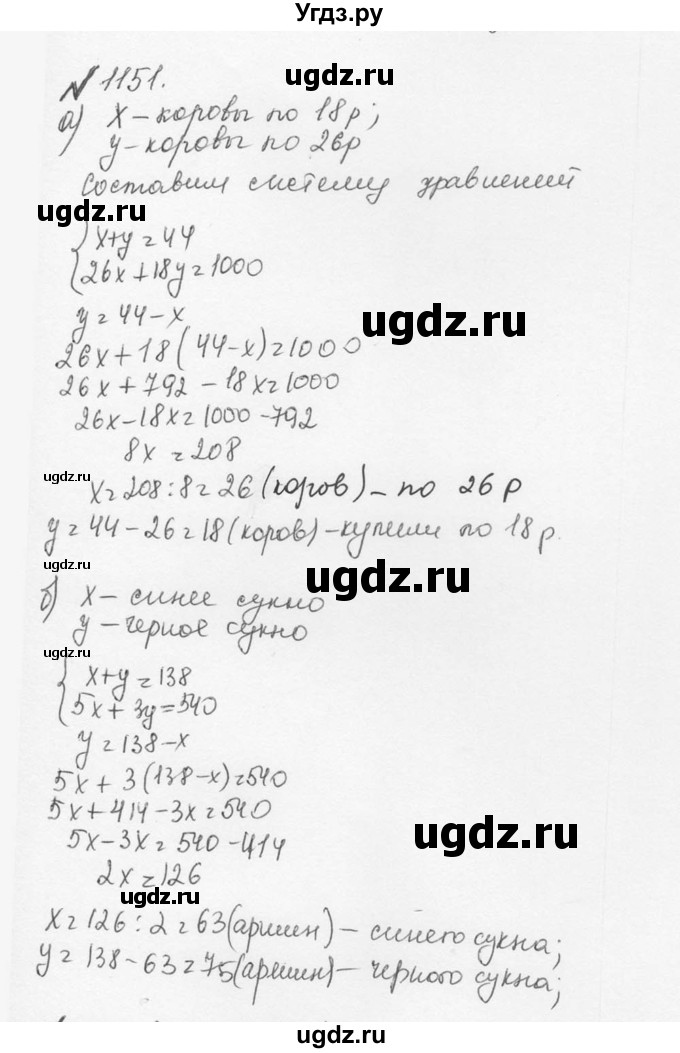 Угдз.ру
№ 1151.
ugdz.ru
а) x – коровы по 18р;
y – коровы по 26р
Составим систему уравнений
ugdz.ru
{ x+y=44
{ 26x+18y=1000
y=44-x
ugdz.ru
26x+18(44-x)=1000
26x+792-18x=1000
26x-18x=1000-792
8x=208
ugdz.ru
x=208:8=26(коров) – по 26р
y=44-26=18(коров) – купили по 18р.
ugdz.ru
ugdz.ru
б) x – синее сукно
y – черное сукно
ugdz.ru
{ x+y=138
{ 5x+3y=540
y=138-x
5x+3(138-x)=540
5x+414-3x=540
ugdz.ru
5x-3x=540-414
2x=126
ugdz.ru
x=126:2=63(аршин) – синего сукна;
y=138-63=75(аршин) – черного сукна;
ugdz.ru